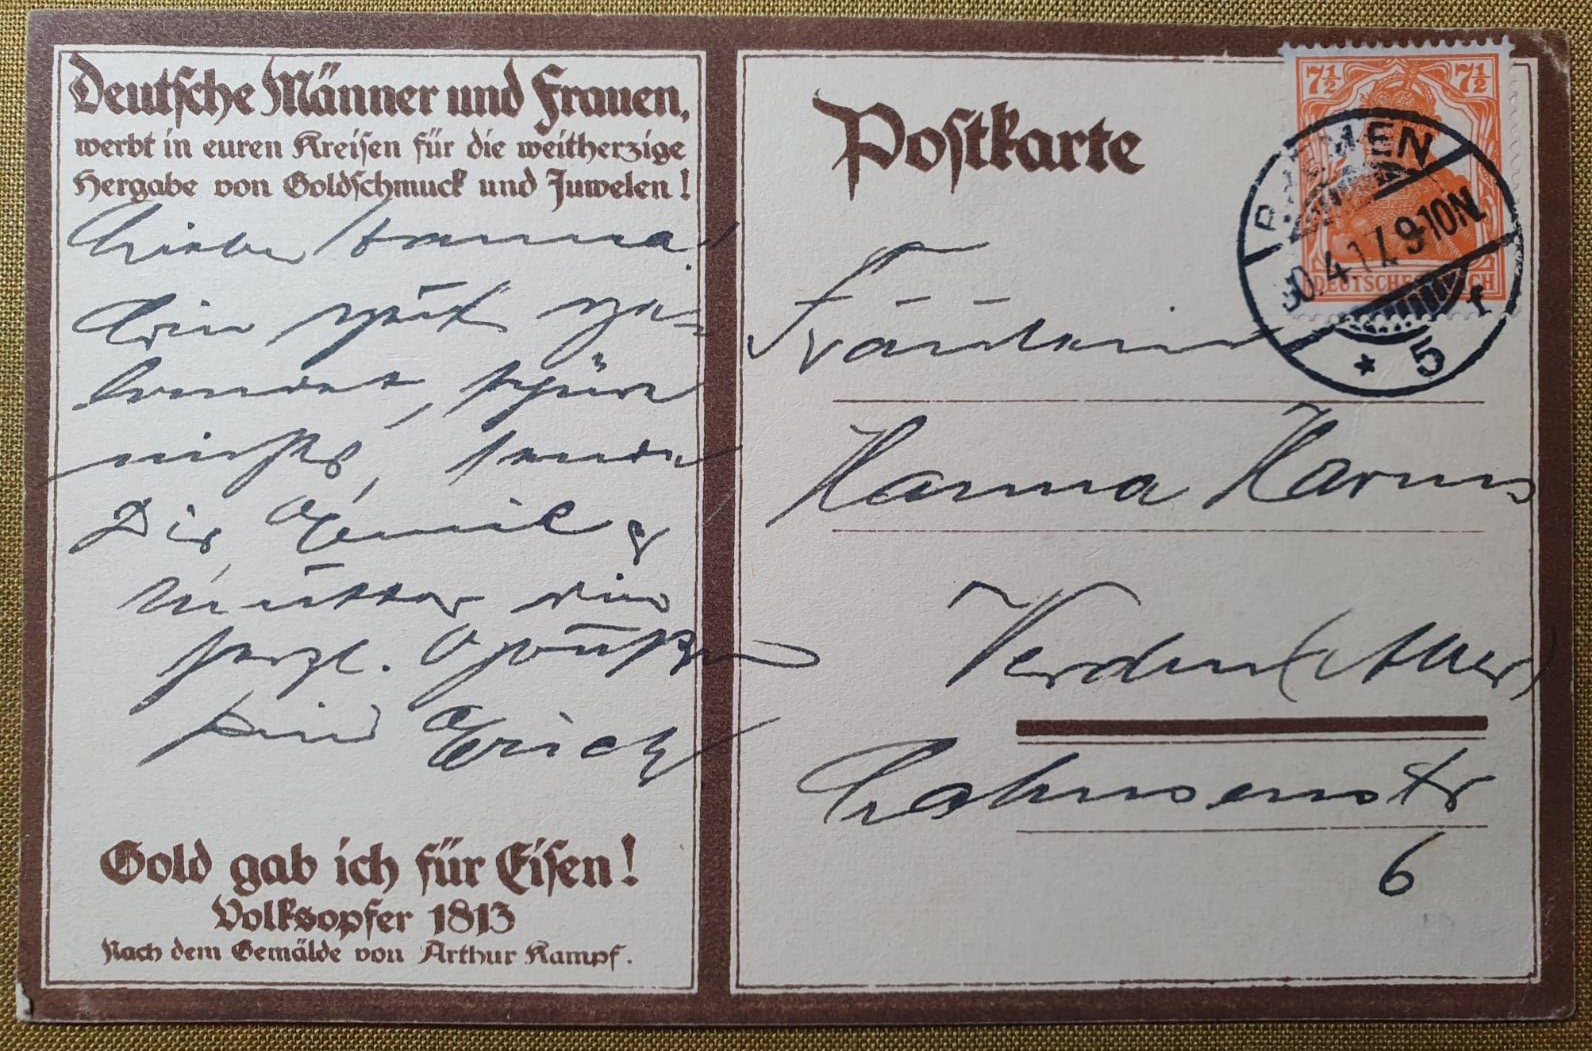 Deutsche Männer und Frauen,
werbt in euren Kreisen für die weitherzige
Hergabe von Goldschmuck und Juwelen!
Liebe Hanna!
Bin ge-
landet,
nichts, sende
Dir, Emil &
Mutter
herzl.
Dein Erich
Gold gab ich für Eisen!
Volksopfer 1813
Nach dem Gemälde von Arthur Kampf.
Postkarte
7½ 7½
DEUTSCHES REICH
BREMEN
30.4.17. 9-10N.
* 5 f
Fräulein
Hanna Harms
Verden (Aller)
6